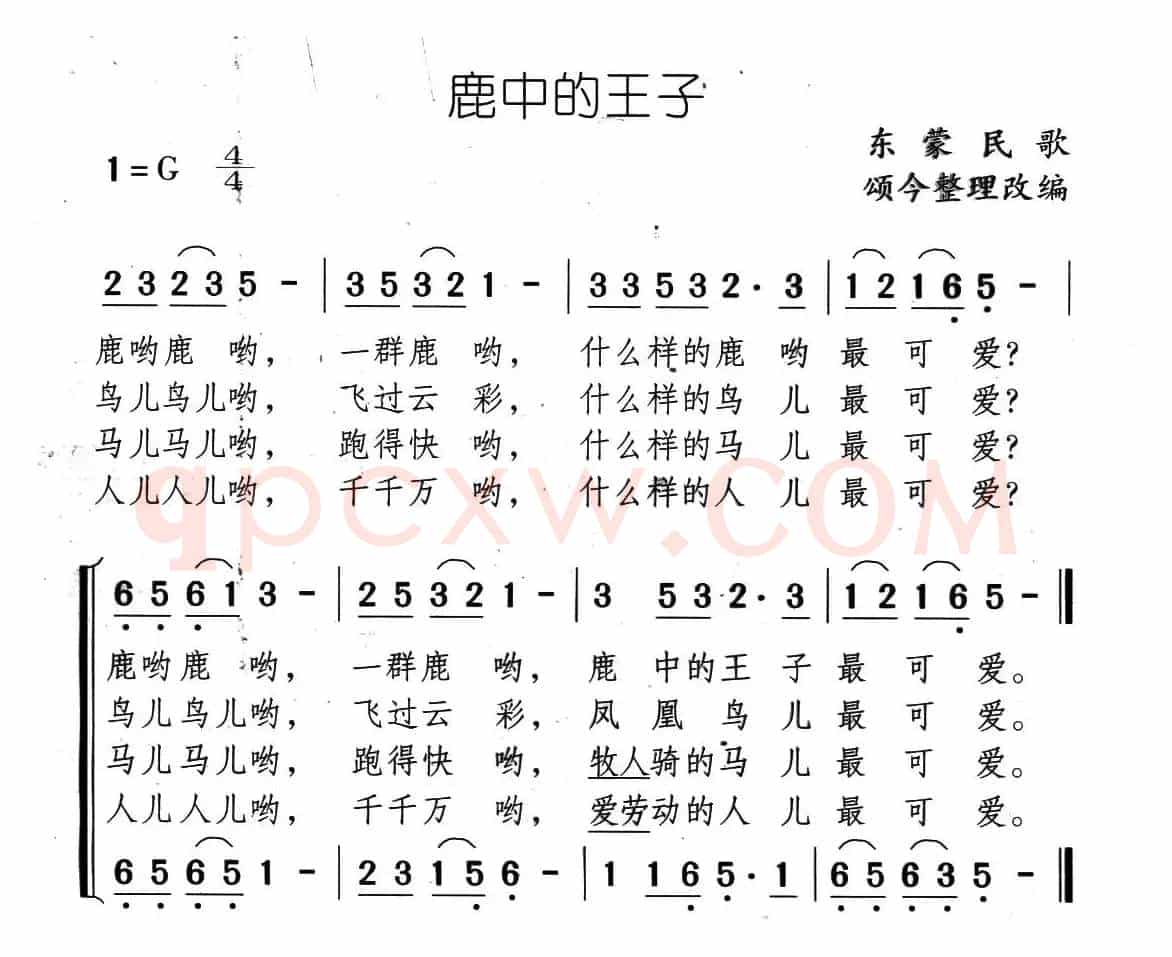 鹿中的王子
东蒙民歌
1=G 4/4
颂今整理改编
2 3 2 3 5 - | 3 5 3 2 1 - | 3 3 5 3 2 · 3 | 1 2 1 6 5 - |
鹿哟鹿 哟, 一群鹿 哟, 什么样的鹿 哟最 可 爱?
鸟儿鸟儿哟, 飞过云 彩, 什么样的鸟 儿最 可 爱?
马儿马儿哟, 跑得快 哟, 什么样的马 儿最 可 爱?
人儿人儿哟, 千千万 哟, 什么样的人 儿最 可 爱?
qpcxw.COM
6 5 6 1 3 - | 2 5 3 2 1 - | 3 5 3 2 · 3 | 1 2 1 6 5 - ‖
鹿哟鹿 哟, 一群鹿 哟, 鹿 中的王 子最 可 爱。
鸟儿鸟儿哟, 飞过云 彩, 凤 凰 鸟 儿最 可 爱。
马儿马儿哟, 跑得快 哟, 牧人骑的马 儿最 可 爱。
人儿人儿哟, 千千万 哟, 爱劳动的人 儿最 可 爱。
6 5 6 5 1 - | 2 3 1 5 6 - | 1 1 6 5 · 1 | 6 5 6 3 5 - ‖